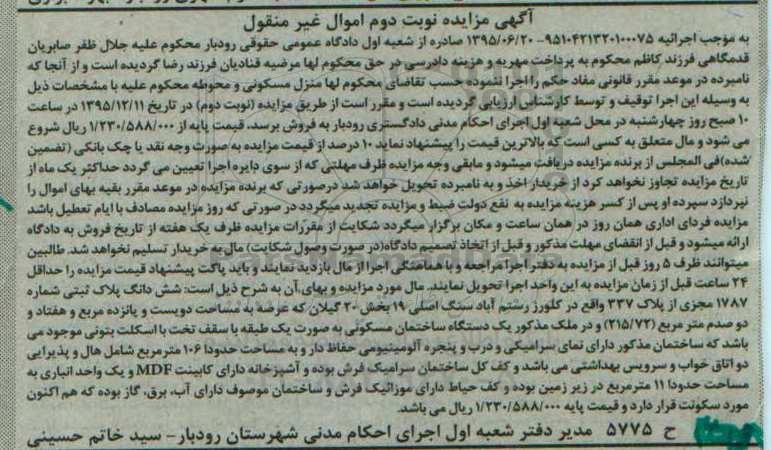 آگهی مزایده نوبت دوم اموال غیر منقول
به موجب اجرائیه ۹۵۱۰۴۲۱۳۲۰۱۰۰۰۷۵-۱۳۹۵/۰۶/۲۰ صادره از شعبه اول دادگاه عمومی حقوقی رودبار محکوم علیه جلال ظفر صابریان
قدمگاهی فرزند کاظم محکوم به پرداخت مهریه و هزینه دادرسی در حق محکوم لها مرضیه قنادیان فرزند رضا گردیده است و از آنجا که
نامبرده در موعد مقرر قانونی مفاد حکم را اجرا ننموده حسب تقاضای محکوم لها منزل مسکونی و محوطه محکوم علیه با مشخصات ذیل
به وسیله این اجرا توقیف و توسط کارشناس ارزیابی گردیده است و مقرر است از طریق مزایده (نوبت دوم) در تاریخ ۱۳۹۵/۱۲/۱۱ در ساعت
۱۰ صبح روز چهارشنبه در محل شعبه اول اجرای احکام مدنی دادگستری رودبار به فروش برسد. قیمت پایه از ۱/۲۳۰/۵۸۸/۰۰۰ ریال شروع
می شود و مال متعلق به کسی است که بالاترین قیمت را پیشنهاد نماید ۱۰ درصد از قیمت مزایده به صورت وجه نقد یا چک بانکی (تضمین
شده)فی المجلس از برنده مزایده دریافت میشود و مابقی وجه مزایده ظرف مهلتی که از سوی دایره اجرا تعیین می گردد حداکثر یک ماه از
تاریخ مزایده تجاوز نخواهد کرد از خریدار اخذ و به نامبرده تحویل خواهد شد درصورتی که برنده مزایده در موعد مقرر بقیه بهای اموال را
نپردازد سپرده او پس از کسر هزینه مزایده به نفع دولت ضبط و مزایده تجدید میگردد در صورتی که روز مزایده مصادف با ایام تعطیل باشد
مزایده فردای اداری همان روز در همان ساعت و مکان برگزار میگردد شکایت از مقررات مزایده ظرف یک هفته از تاریخ فروش به دادگاه
ارائه میشود و قبل از انقضای مهلت مذکور و قبل از اتخاذ تصمیم دادگاه(در صورت وصول شکایت) مال به خریدار تسلیم نخواهد شد. طالبین
میتوانند ظرف ۵ روز قبل از مزایده به دفتر اجرا مراجعه و با هماهنگی اجرا از مال بازدید نمایند و باید پاکت پیشنهاد قیمت مزایده را حداقل
۲۴ ساعت قبل از زمان مزایده به این واحد اجرا تحویل نمایند. مال مورد مزایده و بهای آن به شرح ذیل است: شش دانگ پلاک ثبتی شماره
۱۷۸۷ مجزی از پلاک ۳۳۷ واقع در کلورز رستم آباد سنگ اصلی ۱۹ بخش ۲۰ گیلان که عرصه به مساحت دویست و پانزده مربع و هفتاد و
دو صدم متر مربع (۲۱۵/۷۲) و در ملک مذکور یک دستگاه ساختمان مسکونی به صورت یک طبقه با سقف تخت با اسکلت بتونی موجود می
باشد که ساختمان مذکور دارای نمای سرامیکی و درب و پنجره آلومینیومی حفاظ دار و به مساحت حدودا ۱۰۶ مترمربع شامل هال و پذیرایی
دو اتاق خواب و سرویس بهداشتی می باشد و کف کل ساختمان سرامیک فرش بوده و آشپزخانه دارای کابینت MDF و یک واحد انباری به
مساحت حدودا ۱۱ مترمربع در زیر زمین بوده و کف حیاط دارای موزائیک فرش و ساختمان موصوف دارای آب، برق، گاز بوده که هم اکنون
مورد سکونت قرار دارد و قیمت پایه ۱/۲۳۰/۵۸۸/۰۰۰ ریال می باشد.
ح ۵۷۷۵ مدیر دفتر شعبه اول اجرای احکام مدنی شهرستان رودبار- سید خاتم حسینی